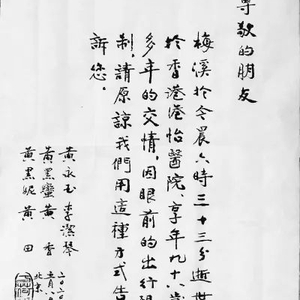 尊敬的朋友
梅溪於今晨六時三十三分逝世
於香港港怡醫院、享年九十八歲
多年的交情,因眼前的出行限
制,請原諒我們用這種方式告
訴您。
黃永玉 李潔琴
黃黑蠻 黃香
黃黑妮 黃田
二〇二〇
北京